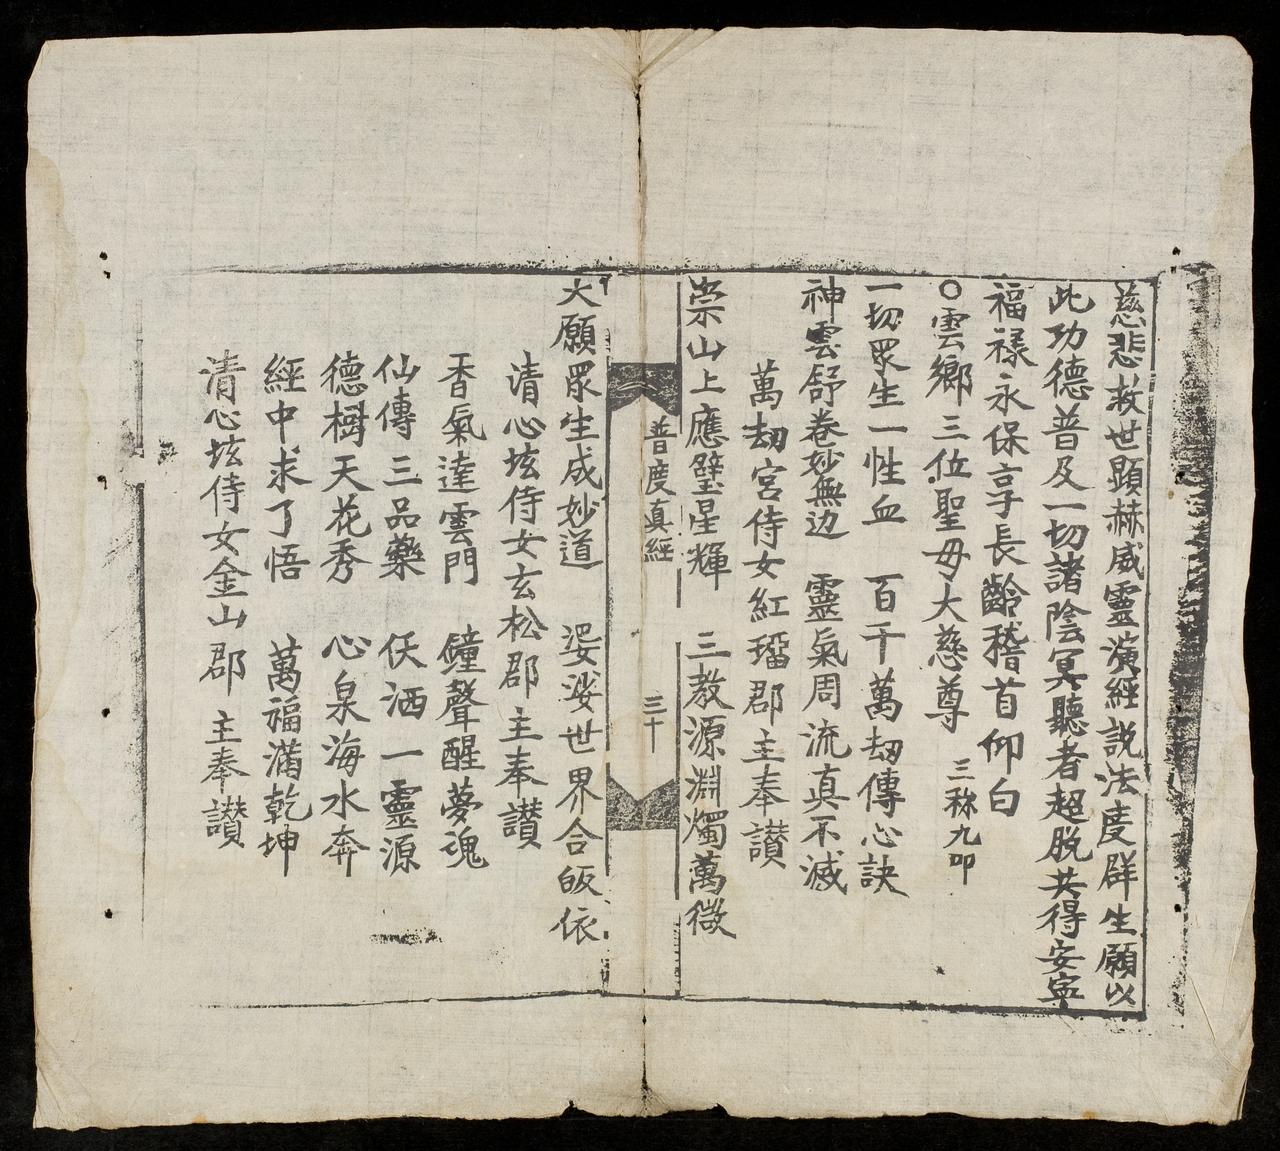 慈悲救世顯赫威靈演經説法度群生願以
此功德普及一切諸陰冥聽者超脱共得安寧
福祿永保享長齡稽首仰白
○雲鄉三位聖母大慈尊 三称九叩
一切眾生一性血 百千萬刼傳心訣
神雲舒卷妙無边 靈氣周流真不滅
萬刼宮侍女紅璫郡主奉讃
崇山上應璧星輝 三教源淵燭萬微
普度真經 三十
大願眾生成妙道 娑婆世界合皈依
清心玹侍女玄松郡主奉讃
香氣達雲門 鐘聲醒夢魂
仙傳三品藥 仸洒一靈源
德樹天花秀 心泉海水奔
經中求了悟 萬福滿乾坤
清心玹侍女金山郡主奉讃